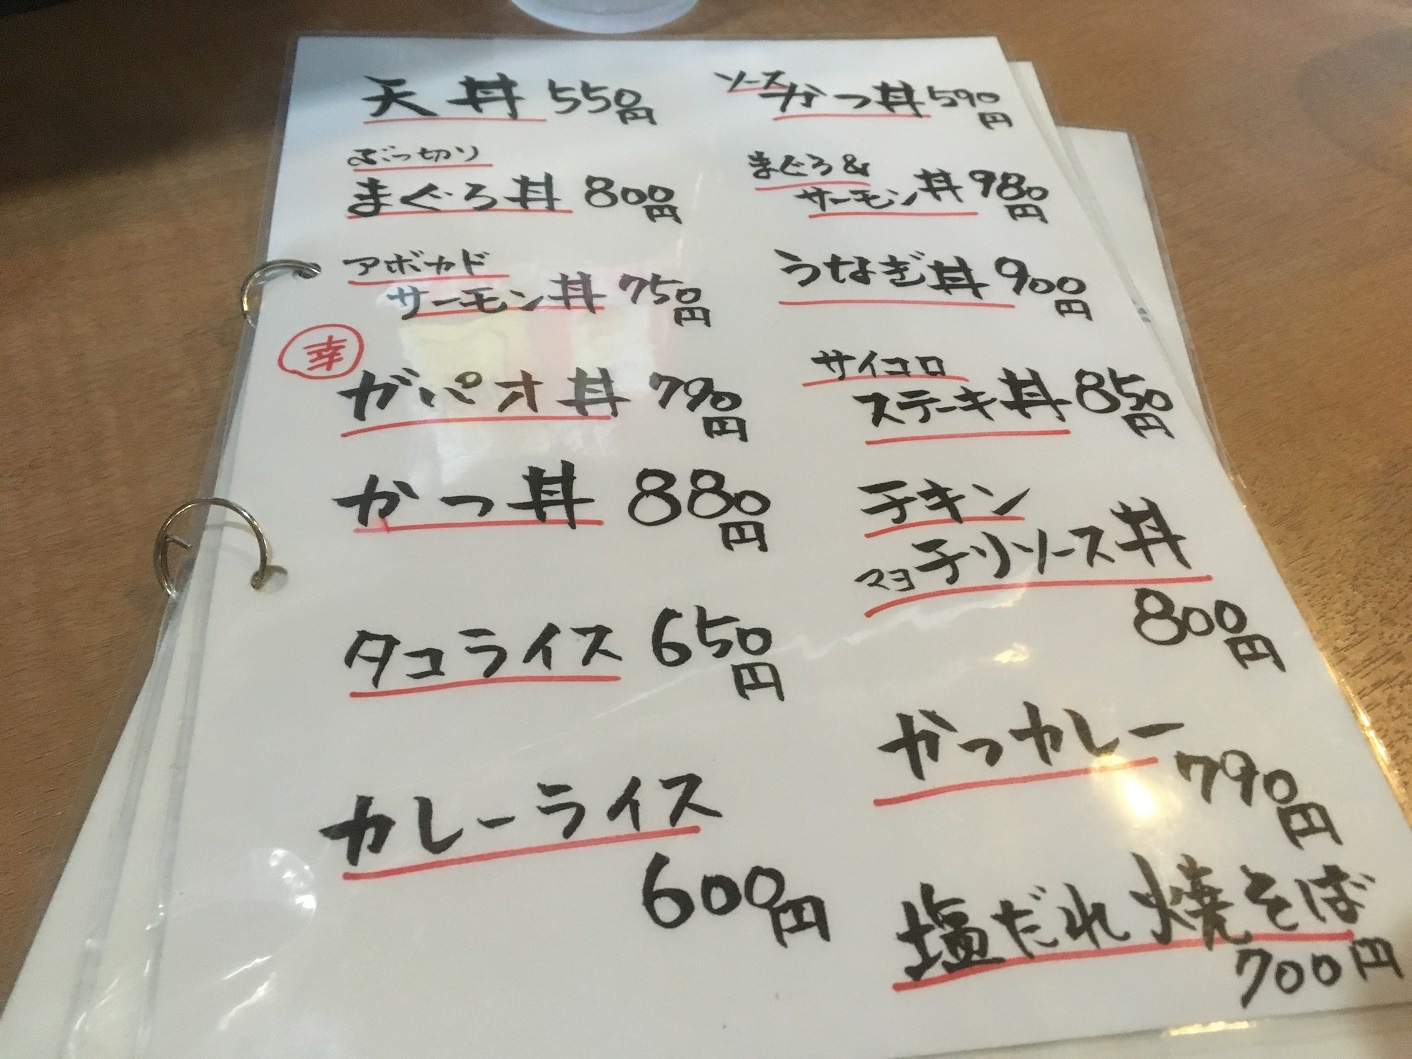 天丼 550円
ぶっ切り
まぐろ丼 800円
アボカド
サーモン丼 750円
幸
ガパオ丼 790円
かつ丼 880円
タコライス 650円
カレーライス
600円
ソース
かつ丼 590円
まぐろ&
サーモン丼 980円
うなぎ丼 900円
サイコロ
ステーキ丼 850円
チキン
マヨチリソース丼
800円
かつカレー
790円
塩だれ焼そば
700円